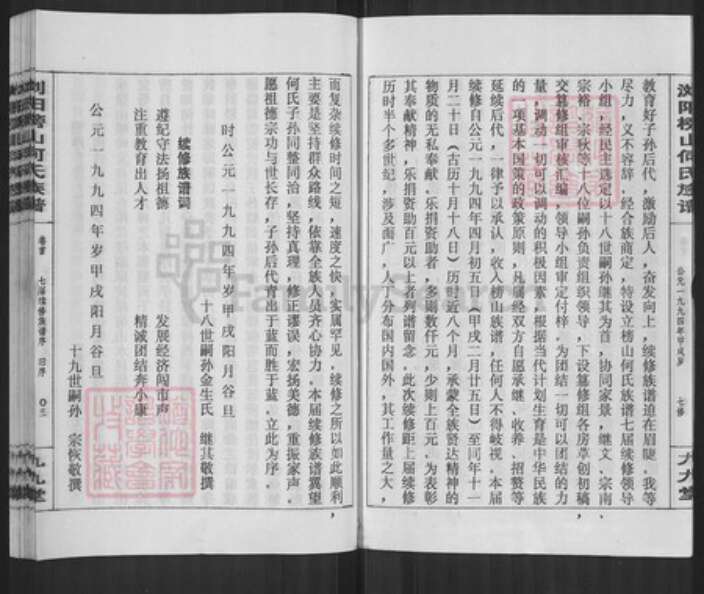 浏阳榜山何氏族谱
公元一九九四年甲戌岁
七修
九九堂
教育好子孙后代，激励后人，奋发向上，续修族谱迫在眉睫。我等
尽力，义不容辞。经合族商定，特设立榜山何氏族谱七届续修领导
小组，经民主选定以十八世嗣孙继其为首，协同家景，继文、宗南、
宗裕、宗秋等十八位嗣孙负责组织领导，下设篡修组各房草创初稿，
交篡修组审核汇编，领导小组审定付梓。为团结一切可以团结的力
量，调动一切可以调动的积极因素，根据当代计划生育是中华民族
的一项基本国策的政策原则，凡属经双方自愿承继、收养、招赘等
延续后代，一律予以承认，收入榜山族谱，任何人不得岐视。本届
续修自公元一九九四年四月初五（甲戌二月廿五日）至同年十一
月二十日（古历十月十八日）历时近八个月，承蒙全族贤达精神的
物质的无私奉献。乐捐资助者，多则数仟元，少则上百元。为表彰
其奉献精神，乐捐资助百元以上者列谱留念。此次续修距上届续修
历时半个多世纪，涉及面广，人丁分布国内国外，其工作量之大，
而复杂续修时间之短，速度之快，实属罕见。续修之所以如此顺利，
主要是坚持群众路线，依靠全族人员齐心协力。本届续修族谱翼望
何氏子孙同整同治，坚持真理，修正谬误，宏扬美德，重振家声。
愿祖德宗功与世长存，子孙后代青出于蓝而胜于蓝。立此为序。
时公元一九九四年岁甲戌阳月谷旦
十八世嗣孙金生氏 继其敬撰
续修族谱词
遵纪守法扬祖德 发展经济闯市声
注重教育出人才 精诚团结奔小康
公元一九九四年岁甲戌阳月谷旦
十九世嗣孙 宗恢敬撰
浏阳榜山何氏族谱
卷首
七届续修族谱序
四序
〇三
九九堂
FamilySearch